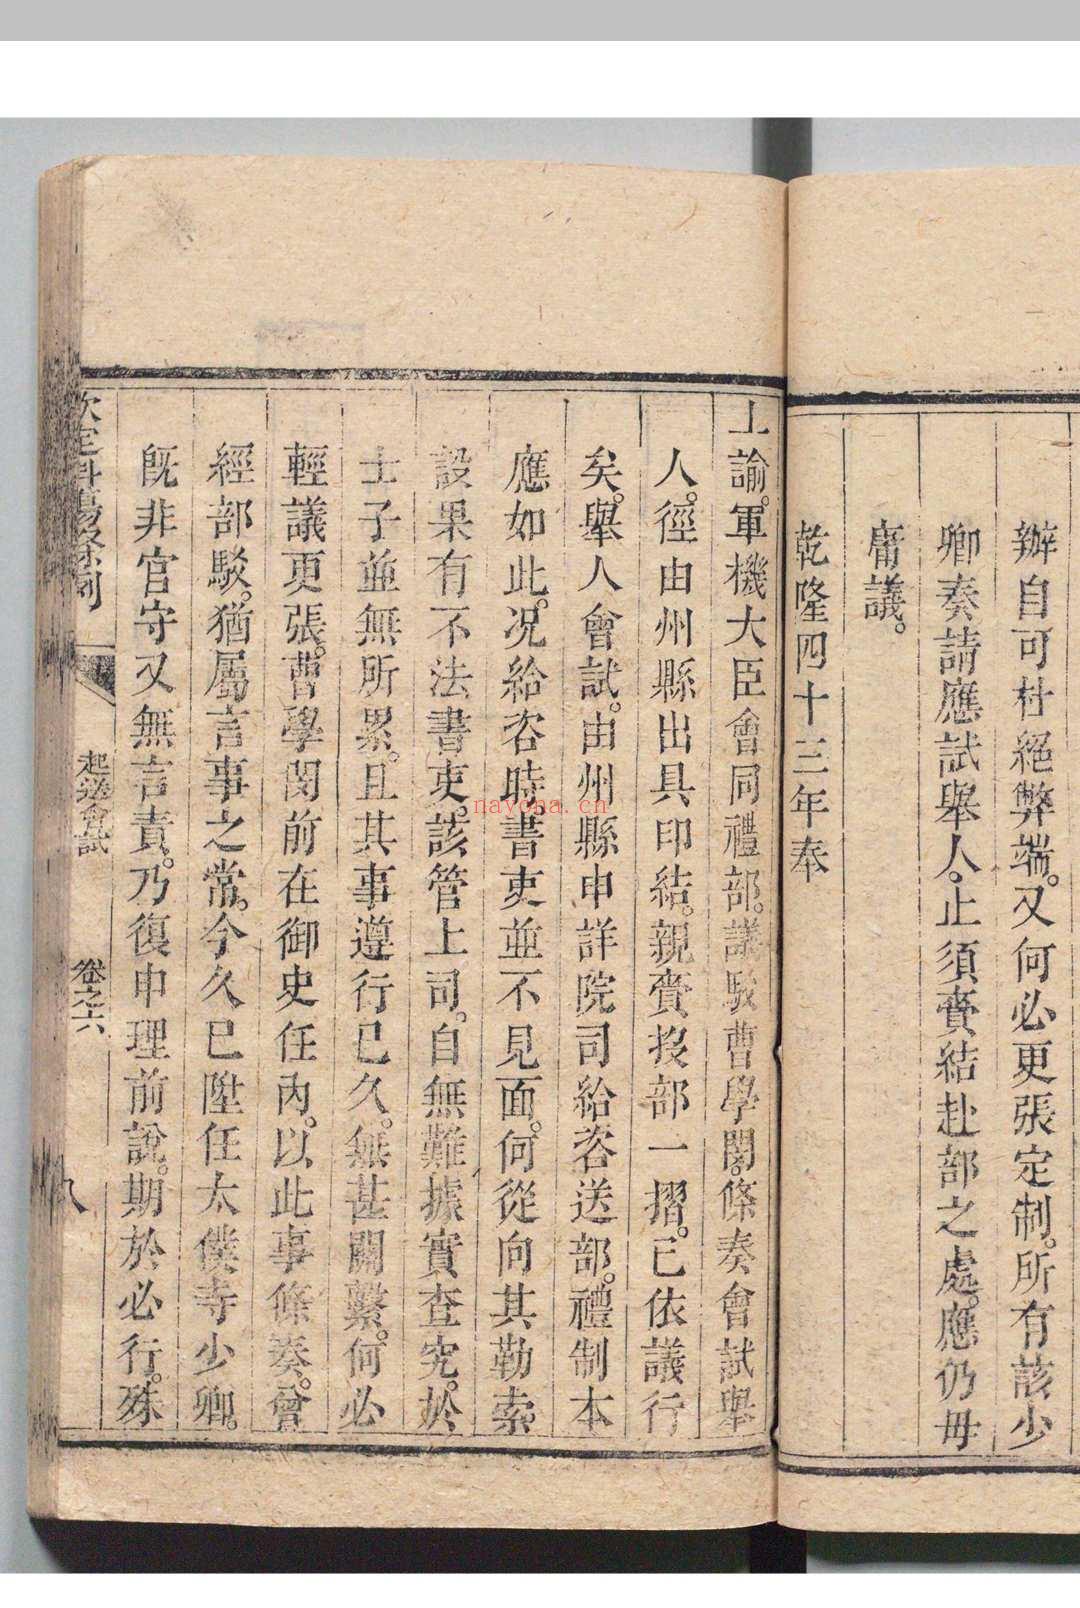 辦自可杜絕弊端。又何必更張定制。所有該少
卿奏請應試舉人。止須賫結赴部之處。應仍毋
庸議。
乾隆四十三年奉
上諭。軍機大臣會同禮部。議駁曹學閔。條奏會試舉
人。徑由州縣出具印結。親賫投部一摺。已依議行
矣。舉人會試。由州縣申詳院司給咨送部。禮制本
應如此。况給咨時。書吏並不見面。何從向其勒索
設果有不法書吏。該管上司。自無難據實查究。於
士子並無所累。且其事遵行已久。無甚關繫。何必
輕議更張。曹學閔前在御史任內。以此事條奏。曾
經部駁。猶屬言事之常。今久已陞任太僕寺少卿。
旣非官守又無言責。乃復申理前說。期於必行。殊
欽定科場條例 起送會試 卷之六 八
navona.cn